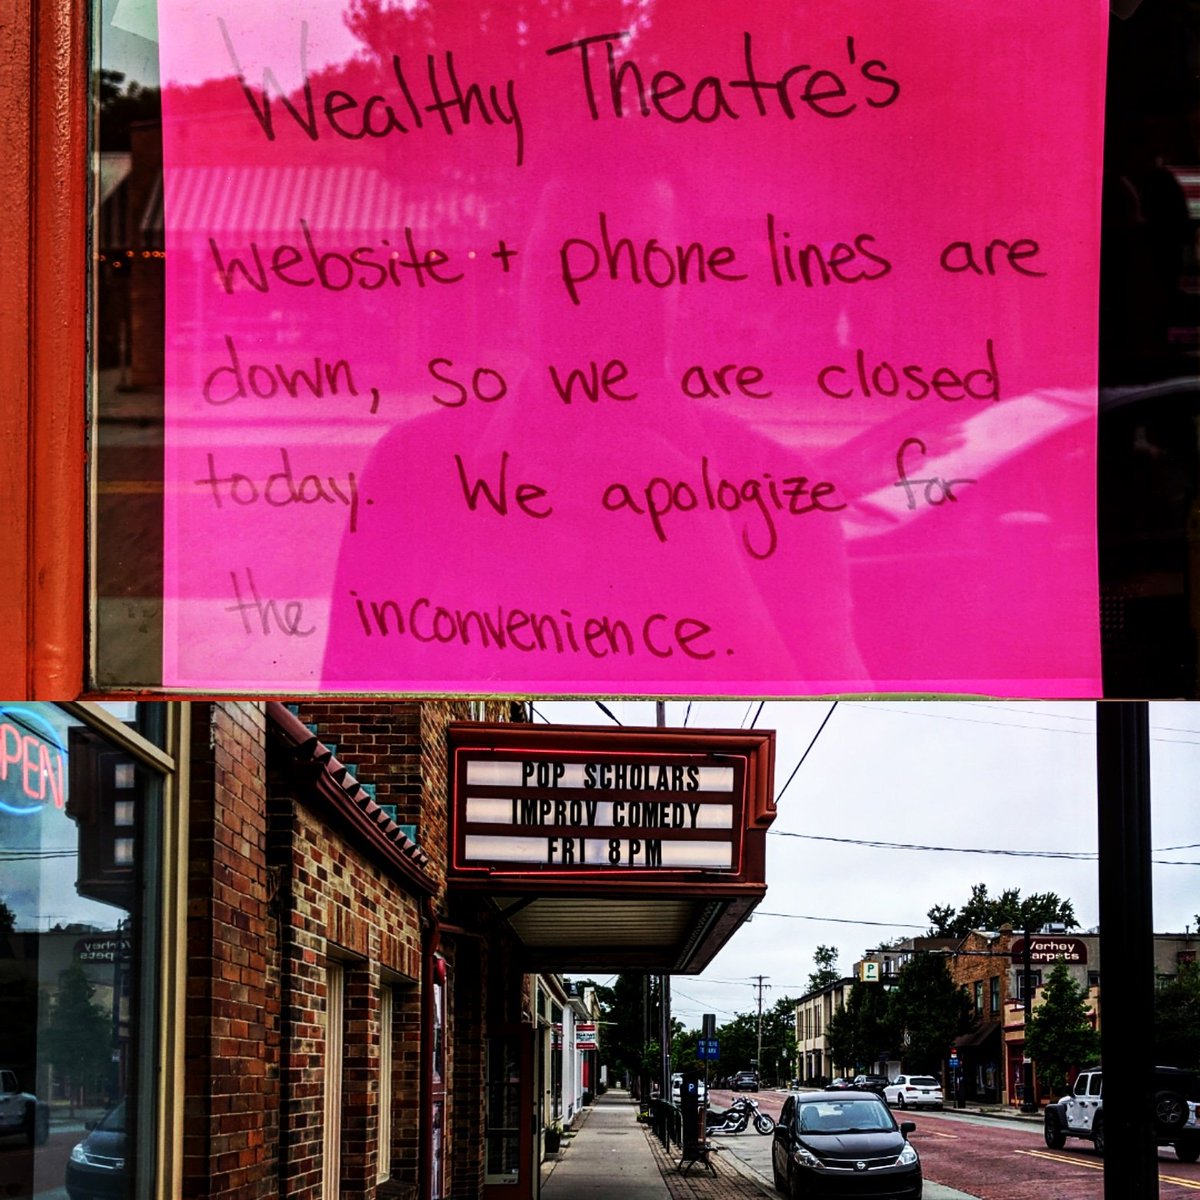 Wealthy Theatre's
website + phone lines are
down, so we are closed
today. We apologize for
the inconvenience.
OPEN
POP SCHOLARS
IMPROV COMEDY
FRI 8PM
Verhey
Carpets
P
Verhey
P